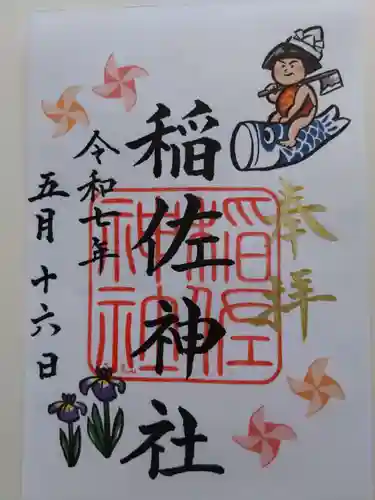 奉拝
稲佐神社
稲佐
神社
令和七年
五月十六日